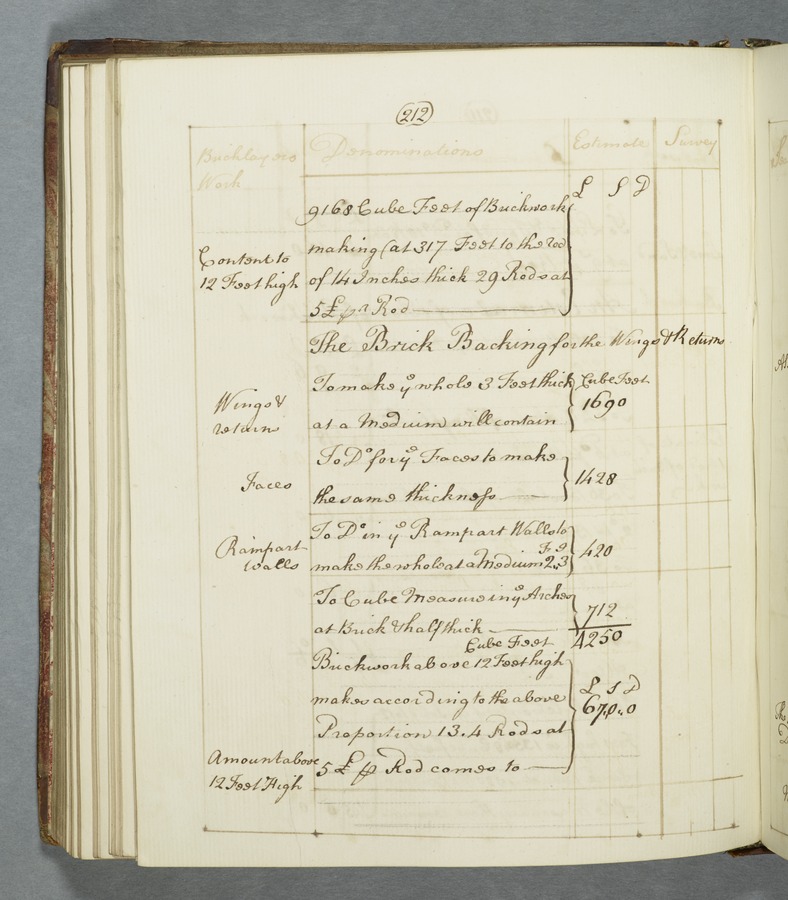 212
Bricklayers Work
Denominations
Estimate
Survey
£ S D
9168 Cube Feet of Brickwork
Content to
12 Feet high
making (at 317 Feet to the Rod
of 14 Inches thick 29 Rods at
5£ pr Rod
The Brick Backing for the Wings & Returns
Wings &
returns
To make ye whole 3 Feet thick
at a Medium will contain
Cube Feet
1690
Faces
To Do for ye Faces to make
the same thickness
1428
Rampart
walls
To Do in ye Rampart Walls to
make the whole at a Medium 2.3
420
To Cube Measure in ye Arches
at Brick & half thick
712
Cube Feet
4250
Brickwork above 12 Feet high
makes according to the above
Proportion 13.4 Rods at
£ S D
67.0.0
Amount above
12 Feet High
5£ p Rod comes to